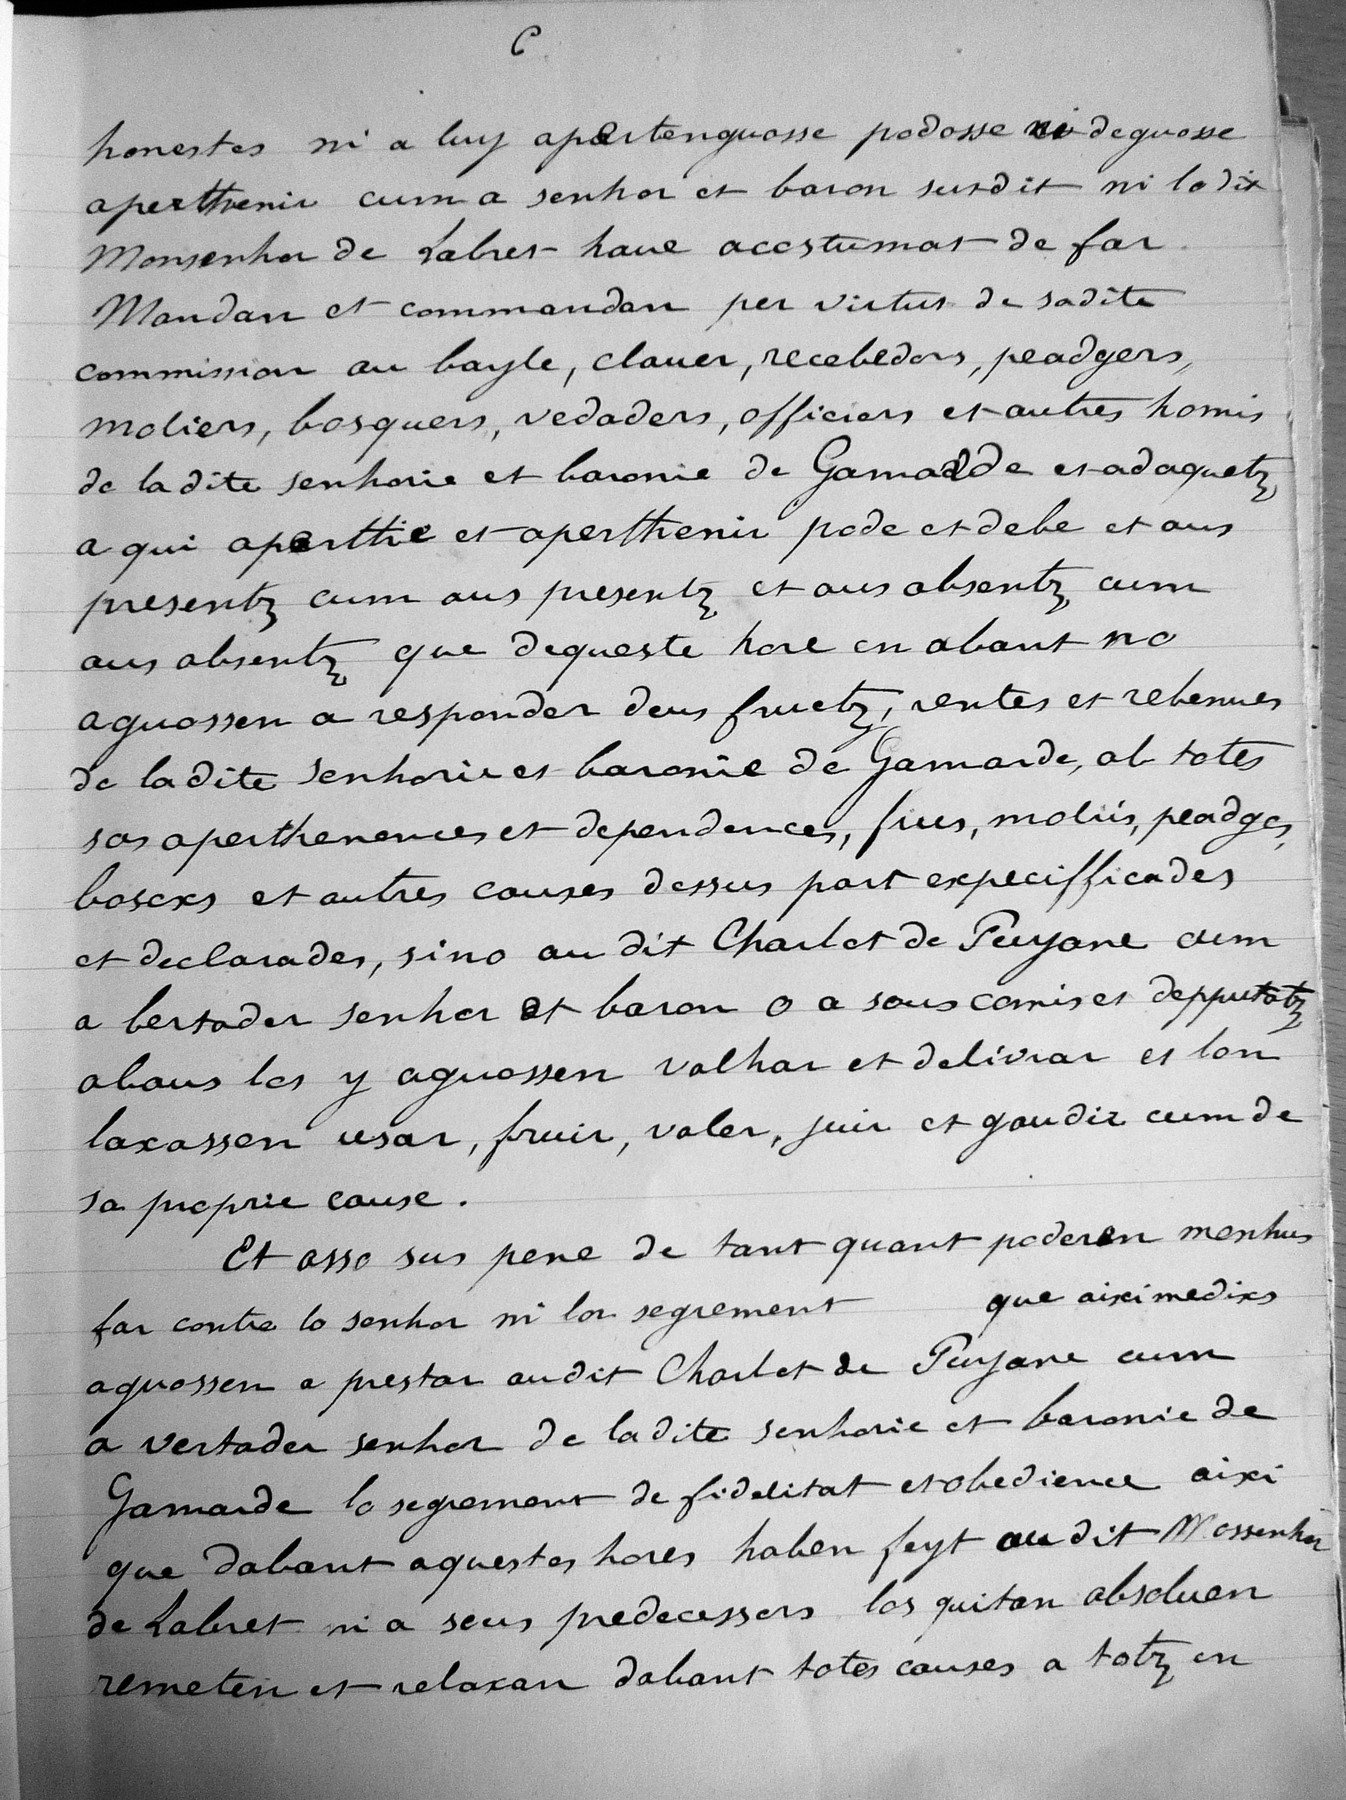 C
honestes ni a luy apertenguosse podosse ni deguosse
aperthenir cum a senhor et baron susdit ni lo dix
Monsenhor de Labret haue acostumat de far
Mandan et commandan per virtut de sadite
commission au bayle, clauer, recebedors, peadgers,
moliers, bosquers, vedaders, officiers et autres homis
de ladite senhorie et baronie de Gamarde et adaquetz
a qui aperthie et aperthenir pode et debe et aus
presentz cum aus presentz et aus absentz cum
aus absentz que dequeste hore en abant no
aguossen a responder deus fructz, rentes et rebenues
de ladite senhorie et baronie de Gamarde, ab totes
sas aperthenences et dependences, fius, moliis, peadges,
boscxs et autres causes dessus part expecifficades
et declarades, sino au dit Charlet de Puyane cum
a bertader senhor et baron o a sous comis et depputatz
abaus los y aguossen valhar et delivrar et lon
laxassen usar, fruir, valer, juir et gaudir cum de
sa proprie cause.
Et asso sus pene de tant quant poderen menhus
far contre lo senhor ni lor segrement que aixi medixs
aguossen a prestar audit Charlet de Puyane cum
a vertader senhor de ladite senhorie et baronie de
Gamarde lo segrement de fidelitat et obedience aixi
que dabant aquestes hores haben feyt au dit Mossenhor
de Labret ni a sous predecessors los quitan absoluen
remeten et relaxan dabant totes causes a totz en